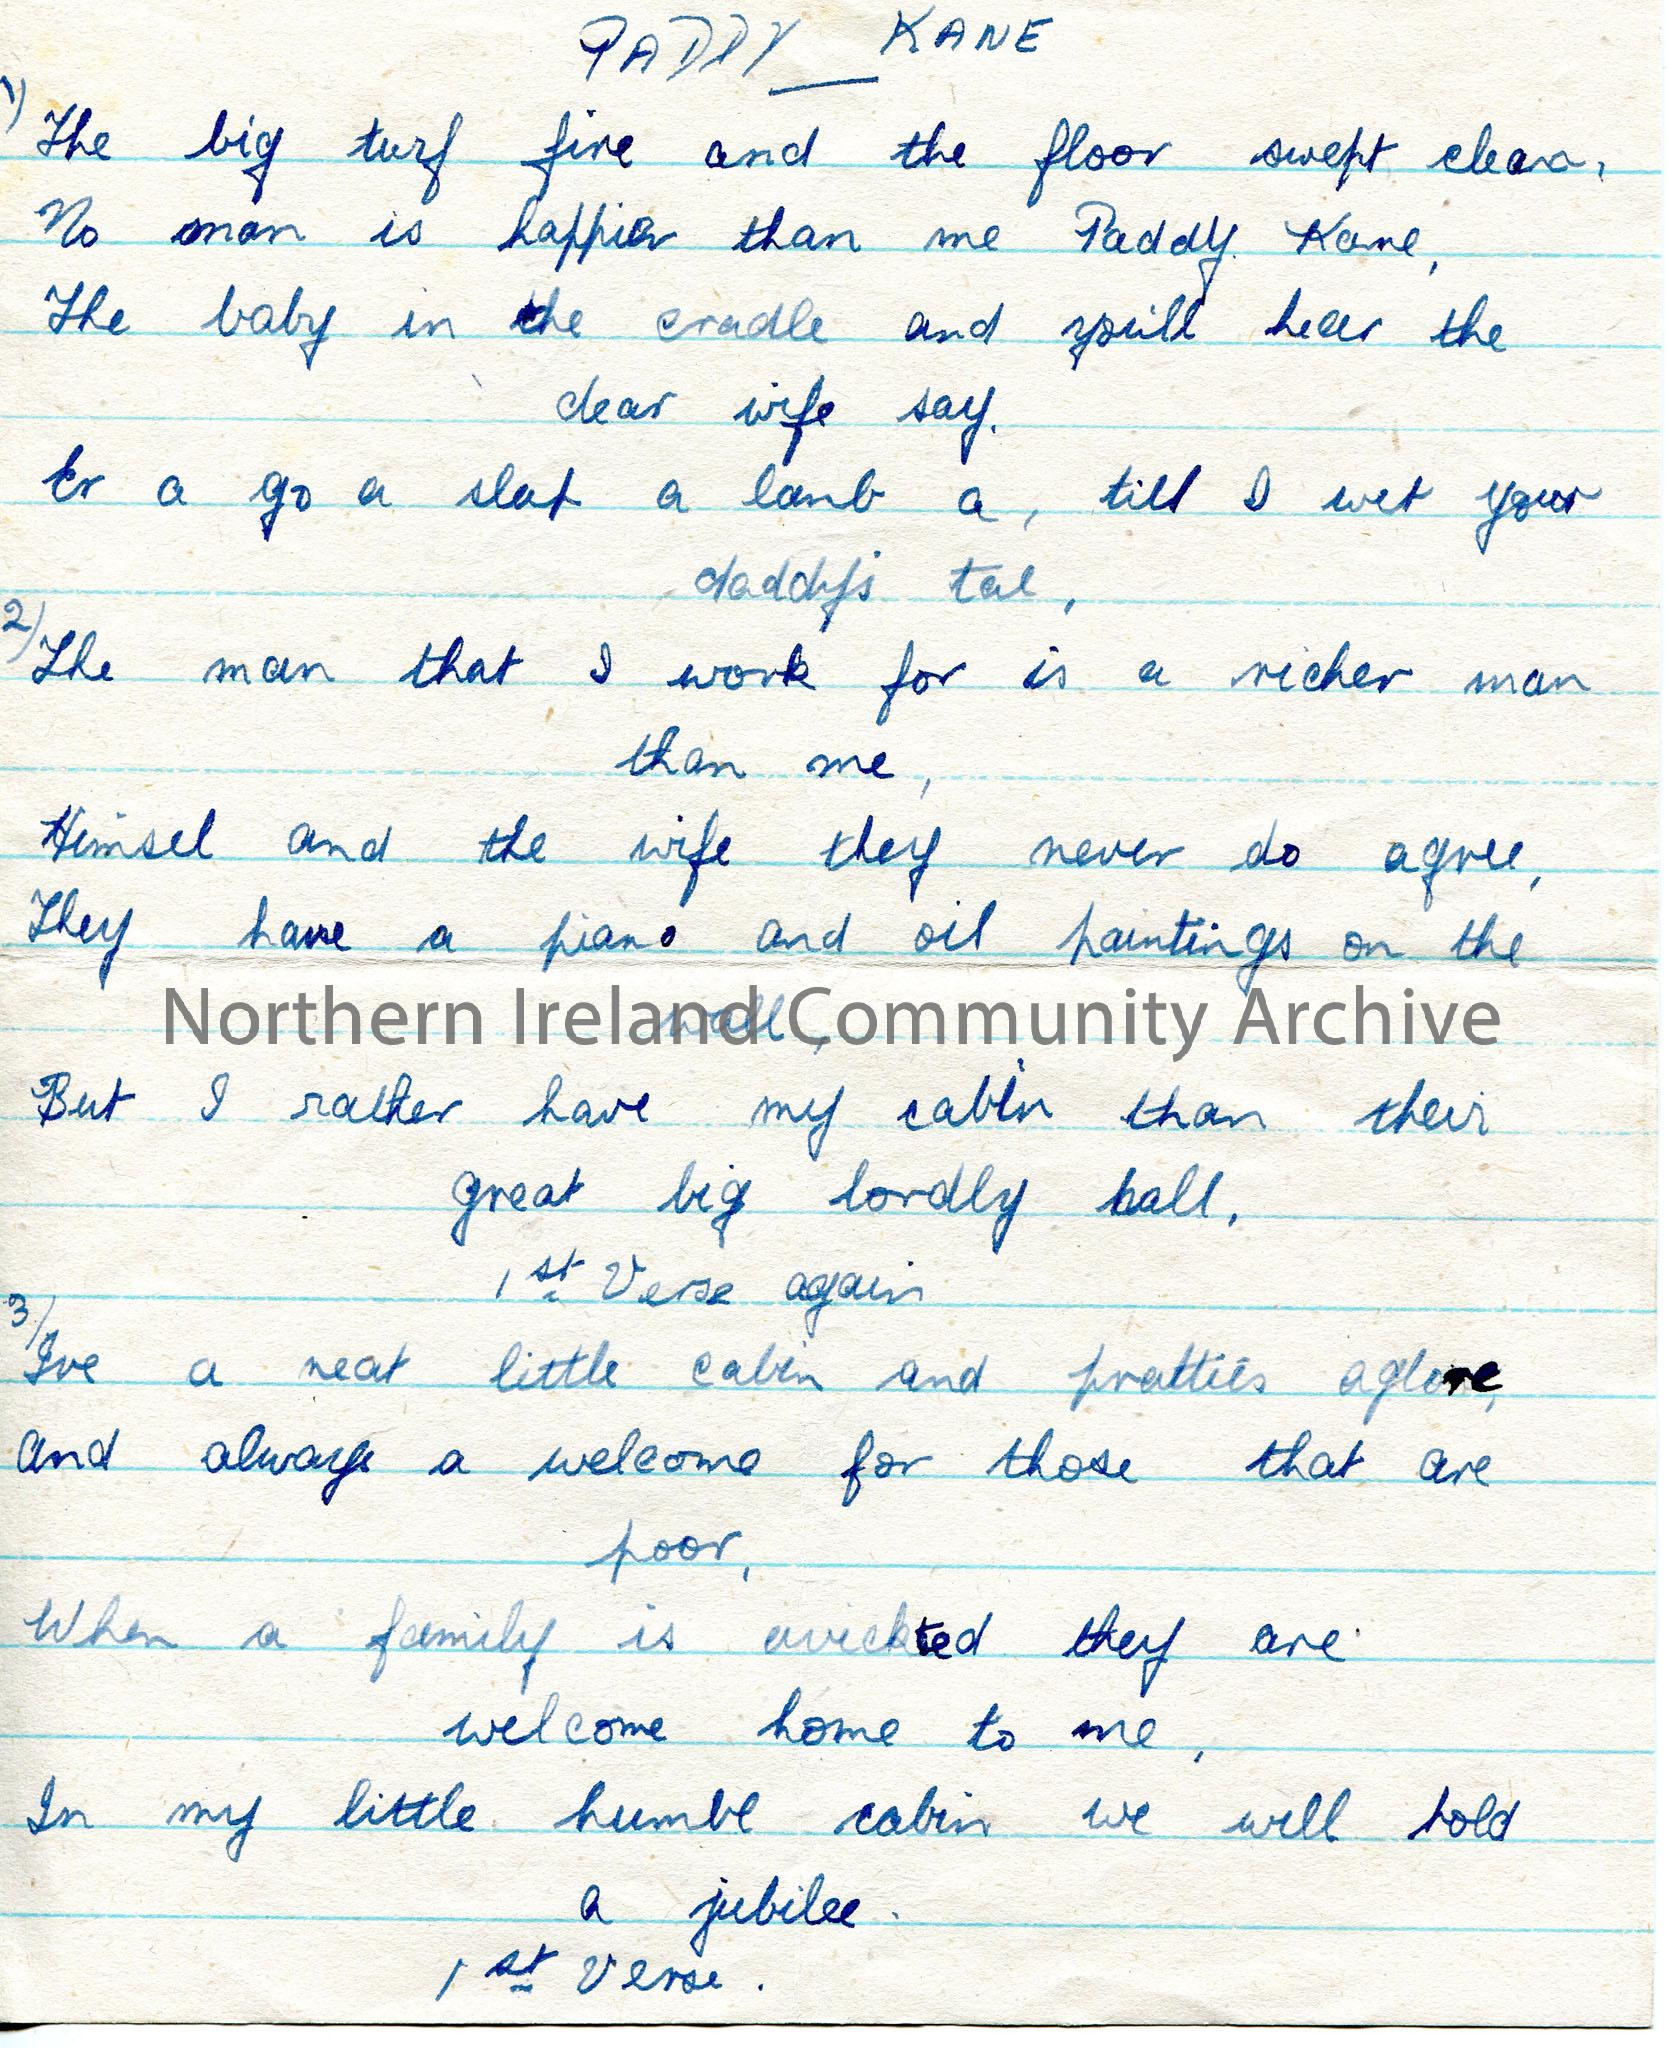 PADDY KANE
1) The big turf fire and the floor swept clean,
No man is happier than me Paddy Kane,
The baby in the cradle and you'll hear the
dear wife say.
Er a go a slap a lamb a, till I wet your
daddy's tae,
2) The man that I work for is a richer man
than me,
Himsel and the wife they never do agree,
They have a piano and oil paintings on the
wall,
Northern Ireland Community Archive
But I rather have my cabin than their
great big lordly hall,
1st Verse again
3) Ive a neat little cabin and pratties aglore,
And always a welcome for those that are
poor,
When a family is evickted they are
welcome home to me,
In my little humbl cabin we will hold
a jubilee.
1st Verse.